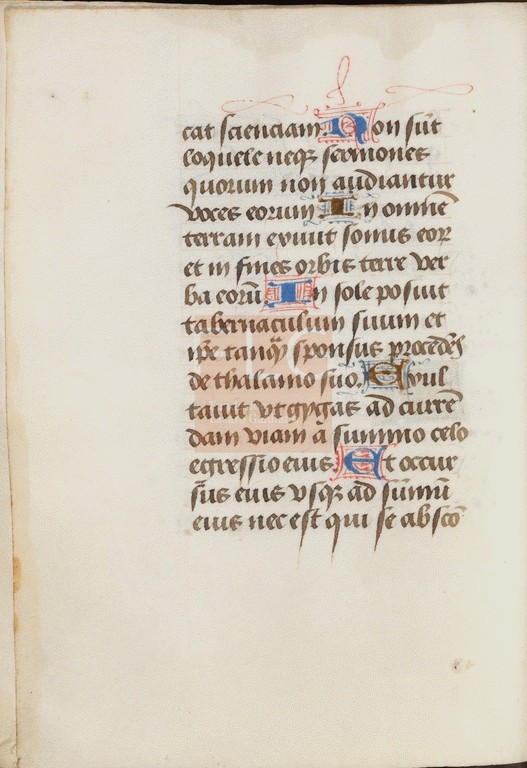 cat scienciam. Non sūt
loquele neqꝫ sermones
quorum non audiantur
voces eorum In omnē
terram exiuit sonus eoꝝ
et in fines orbis terre ver
ba eorū In sole posuit
tabernaculum suum et
ip̄e tanqͣ sponsus procedēs
de thalamo suo. Exul
tauit vt gygas ad currē
dam viam a summo celo
egressio eius Et occur
sus eius vsqꝫ ad sūmū
eius nec est qui se abscō